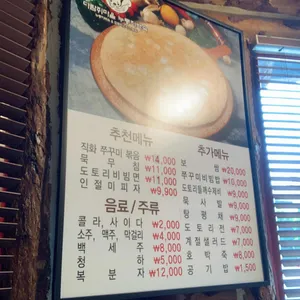 추천메뉴
직화 쭈꾸미 볶음 ₩14,000
묵 무 침 ₩11,000
도토리비빔면 ₩11,000
인절미피자 ₩9,900
음료 / 주류
콜라, 사이다 ₩2,000
소주, 맥주, 막걸리 ₩4,000
백 세 주 ₩8,000
청 하 ₩5,000
복 분 자 ₩12,000
추가메뉴
보 쌈 ₩20,000
쭈꾸미비빔밥 ₩10,000
도토리들깨수제비 ₩9,000
묵 사 발 ₩9,000
탕 평 채 ₩9,000
도 토 리 전 ₩7,000
계절샐러드 ₩7,000
호 박 죽 ₩8,000
공 기 밥 ₩1,500